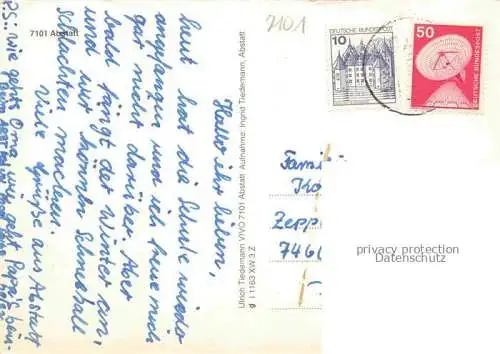 7101 Abstatt
7101
Hallo ihr Lieben,
heut hat die Schule wieder
angefangen und ich freue mich
gar nicht darüber. Aber
bald fängt der Winter an,
und wir können Schneeball
schlachten machen.
Viele Grüße aus Abstatt
P.S: wie gehts Oma, wie geht Papa's
Ulrich Tiedemann VIVO 7101 Abstatt Aufnahme: Ingrid Tiedemann, Abstatt
d i 1163 XW 3 Z
10
DEUTSCHE BUNDESPOST
50
DEUTSCHE BUNDESPOST
Famil
Ko
Zepp
7461
privacy protection
Datenschutz